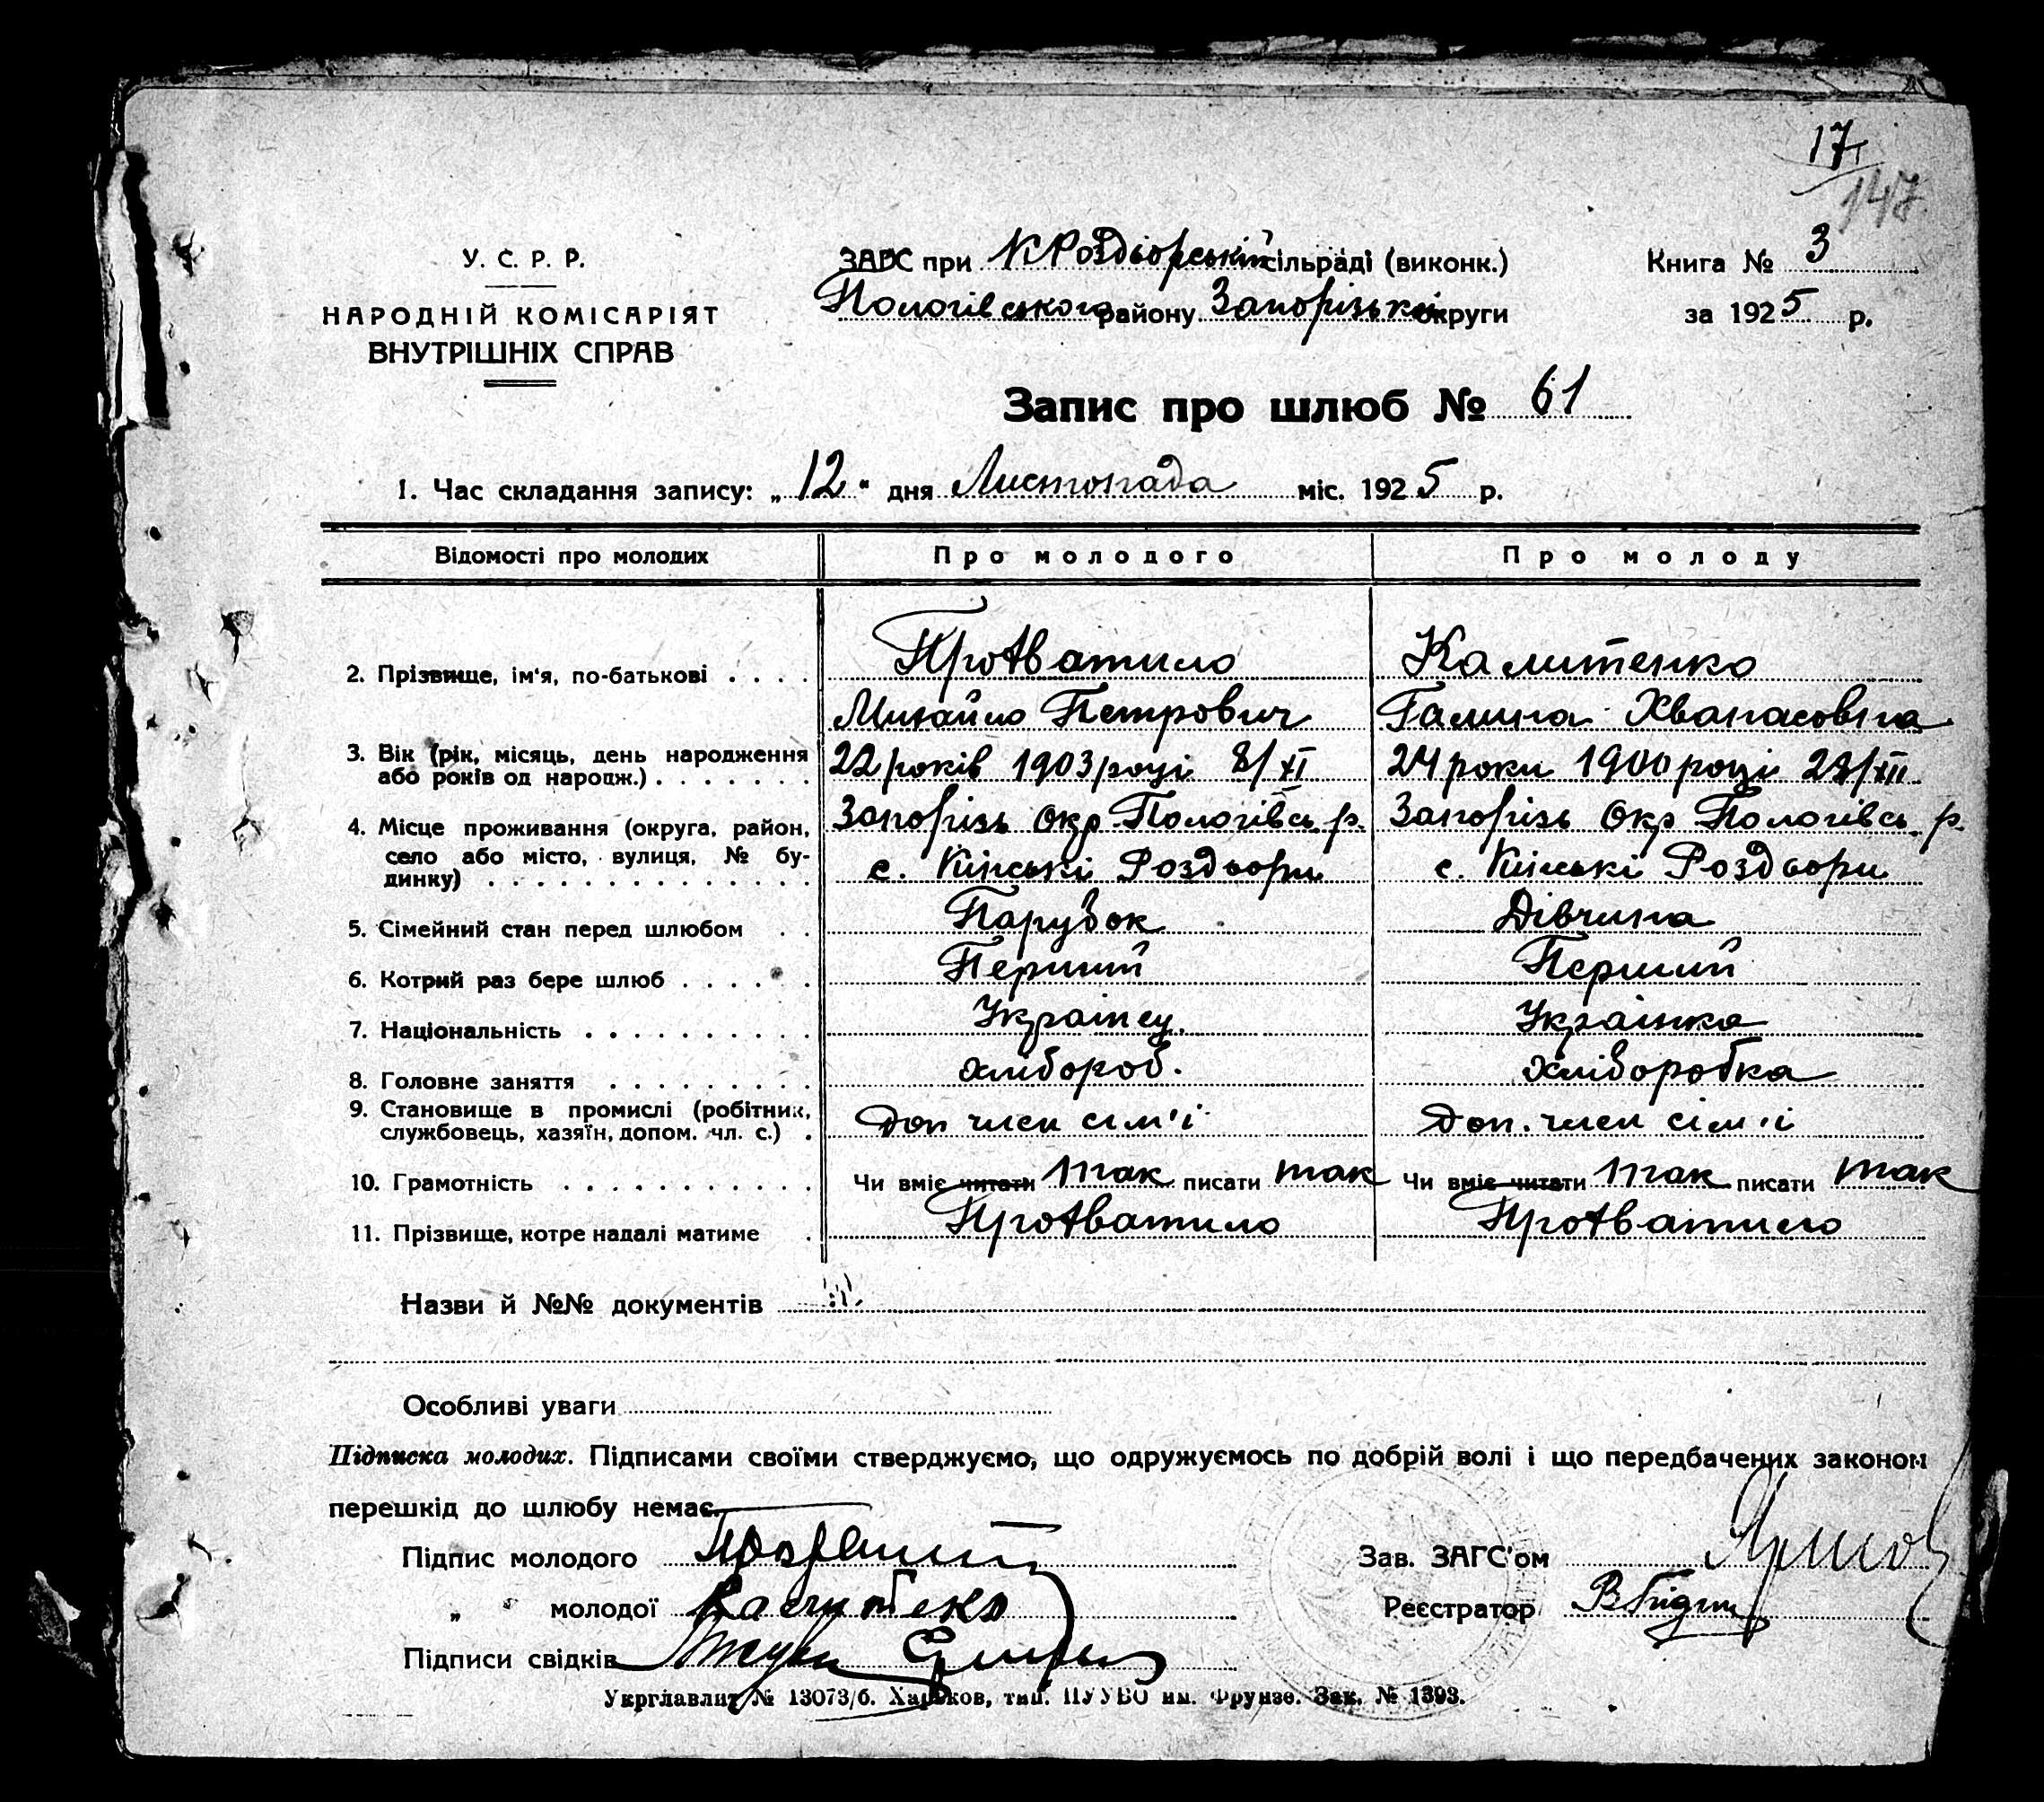 17
147
У. С. Р. Р.
НАРОДНІЙ КОМІСАРІЯТ
ВНУТРІШНІХ СПРАВ
ЗАГС при К Роздіорській сільраді (виконк.)
Пологівського району Запорізької округи
Книга № 3
за 1925 р.
Запис про шлюб № 61
1. Час складання запису: „12" дня Листопада міс. 1925 р.
Відомості про молодих Про молодого Про молоду
2. Прізвище, ім'я, по-батькові . . . . Калитенко
Михайло Петрович Галина Хванасовна
3. Вік (рік, місяць, день народження 22 років 1903 році 8/XI 24 роки 1900 році /XII
або років од народж.) . . . . . . .
4. Місце проживання (округа, район, Запорізь Окр Пологівсь р. Запорізь Окр Пологівсь р.
село або місто, вулиця, № бу-
динку) . . . . . . . . . . . . . . с. Кінські Роздори с. Кінські Роздори
5. Сімейний стан перед шлюбом . . Парубок Дівчина
6. Котрий раз бере шлюб . . . . . . Перший Перший
7. Національність . . . . . . . . . . Українец Українка
8. Головне заняття . . . . . . . . . хлібороб. хліборобка
9. Становище в промислі (робітник, Доп член сім'ї Доп. член сім'ї
службовець, хазяїн, допом. чл. с.) .
10. Грамотність . . . . . . . . . . . Чи вміє читати так писати так Чи вміє читати так писати так
11. Прізвище, котре надалі матиме .
Назви й №№ документів
Особливі уваги
Підписка молодих. Підписами своїми стверджуємо, що одружуємось по добрій волі і що передбачених законом
перешкід до шлюбу немає.
Підпис молодого
Зав. ЗАГС'ом
„ молодої Калитенко
Реєстратор
Підписи свідків
Укрглавлит № 13073/б. Харьков, тип. ПУУВО им. Фрунзе. Зак. № 1393.